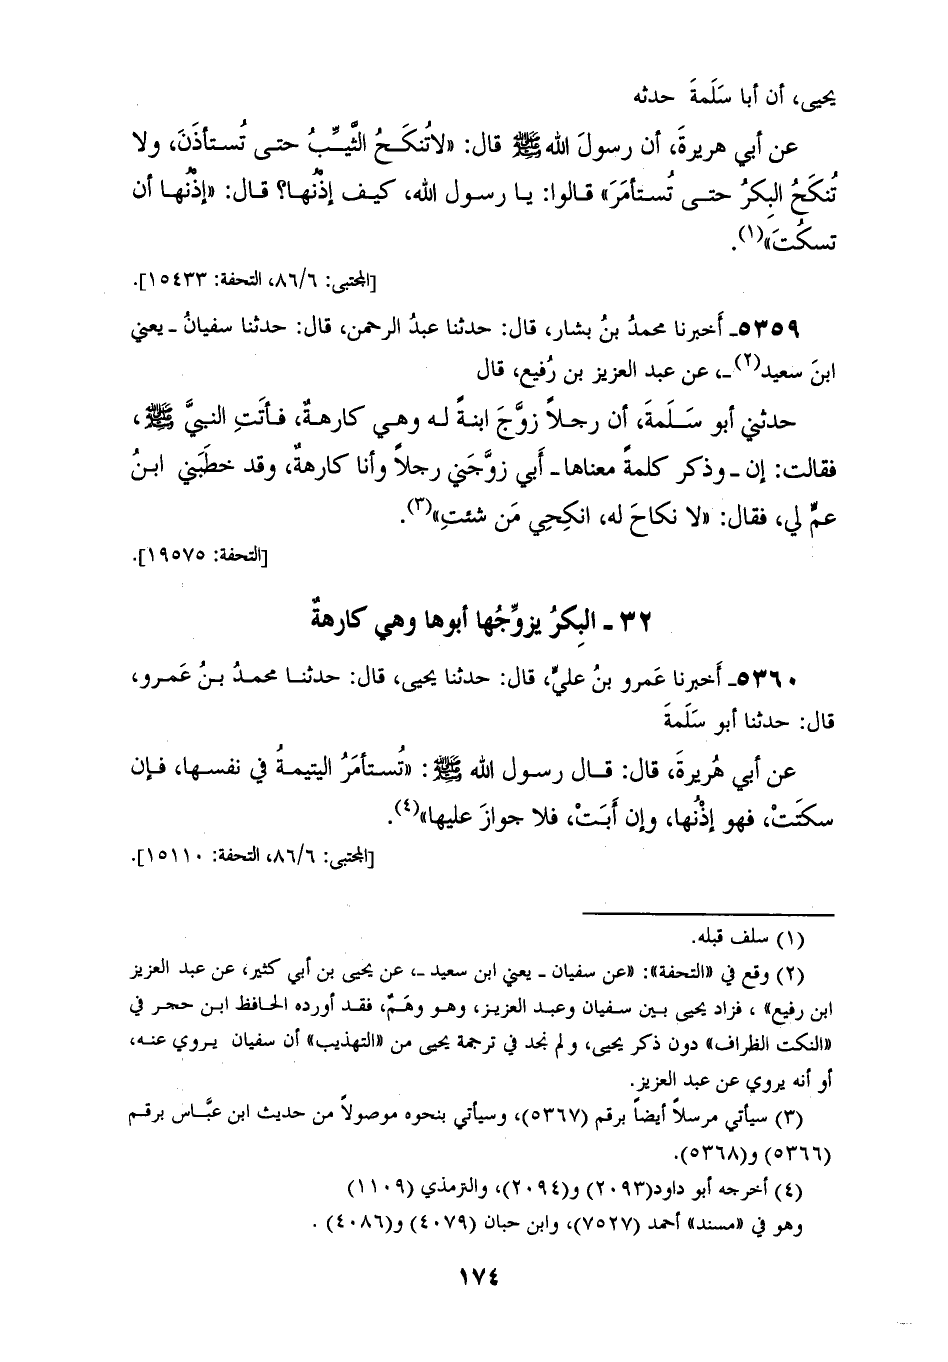 يحيى، أن أبا سَلَمةَ حدثه
عن أبي هريرةَ، أن رسولَ الله ﷺ قال: «لا تُنكَحُ الثَّيِّبُ حتى تُستأذَنَ، ولا
تُنكَحُ البِكرُ حتى تُستأمَرَ» قالوا: يا رسول الله، كيف إذْنُها؟ قال: «إذْنُها أن
تسكُتَ»(١).
[المجتبى: ٨٦/٦، التحفة: ١٥٤٣٣].
٥٣٥٩ـ أخبرنا محمدُ بنُ بشار، قال: حدثنا عبدُ الرحمن، قال: حدثنا سفيانُ ـ يعني
ابنَ سعيد(٢) ـ، عن عبد العزيز بن رُفيع، قال
حدثني أبو سَلَمةَ، أن رجلاً زوَّجَ ابنةً له وهي كارهةٌ، فأتَتِ النبيَّ ﷺ،
فقالت: إن ـ وذكر كلمةً معناها ـ أبي زوَّجَني رجلاً وأنا كارهةٌ، وقد خطَبَني ابنُ
عمٍّ لي، فقال: «لا نكاحَ له، انكِحِي مَن شئتِ»(٣).
[التحفة: ١٩٥٧٥].
٣٢ ـ البِكرُ يزوِّجُها أبوها وهي كارهةٌ
٥٣٦٠ـ أخبرنا عَمرو بنُ عليٍّ، قال: حدثنا يحيى، قال: حدثنا محمدُ بنُ عَمرو،
قال: حدثنا أبو سَلَمةَ
عن أبي هُريرةَ، قال: قال رسول الله ﷺ: «تُستأمَرُ اليتيمةُ في نفسها، فإن
سكتَتْ، فهو إذْنُها، وإن أَبَتْ، فلا جوازَ عليها»(٤).
[المجتبى: ٨٦/٦، التحفة: ١٥١١٠].
(١) سلف قبله.
(٢) وقع في «التحفة»: «عن سفيان ـ يعني ابن سعيد ـ، عن يحيى بن أبي كثير، عن عبد العزيز
ابن رفيع» ، فزاد يحيى بين سفيان وعبد العزيز، وهو وهَمٌ، فقد أورده الحافظ ابن حجر في
«النكت الظراف» دون ذكر يحيى، ولم نجد في ترجمة يحيى من «التهذيب» أن سفيان يروي عنه،
أو أنه يروي عن عبد العزيز.
(٣) سيأتي مرسلاً أيضاً برقم (٥٣٦٧)، وسيأتي بنحوه موصولاً من حديث ابن عبَّاس برقم
(٥٣٦٦) و(٥٣٦٨).
(٤) أخرجه أبو داود(٢٠٩٣) و(٢٠٩٤)، والترمذي (١١٠٩)
وهو في «مسند» أحمد (٧٥٢٧)، وابن حبان (٤٠٧٩) و(٤٠٨٦) .
١٧٤